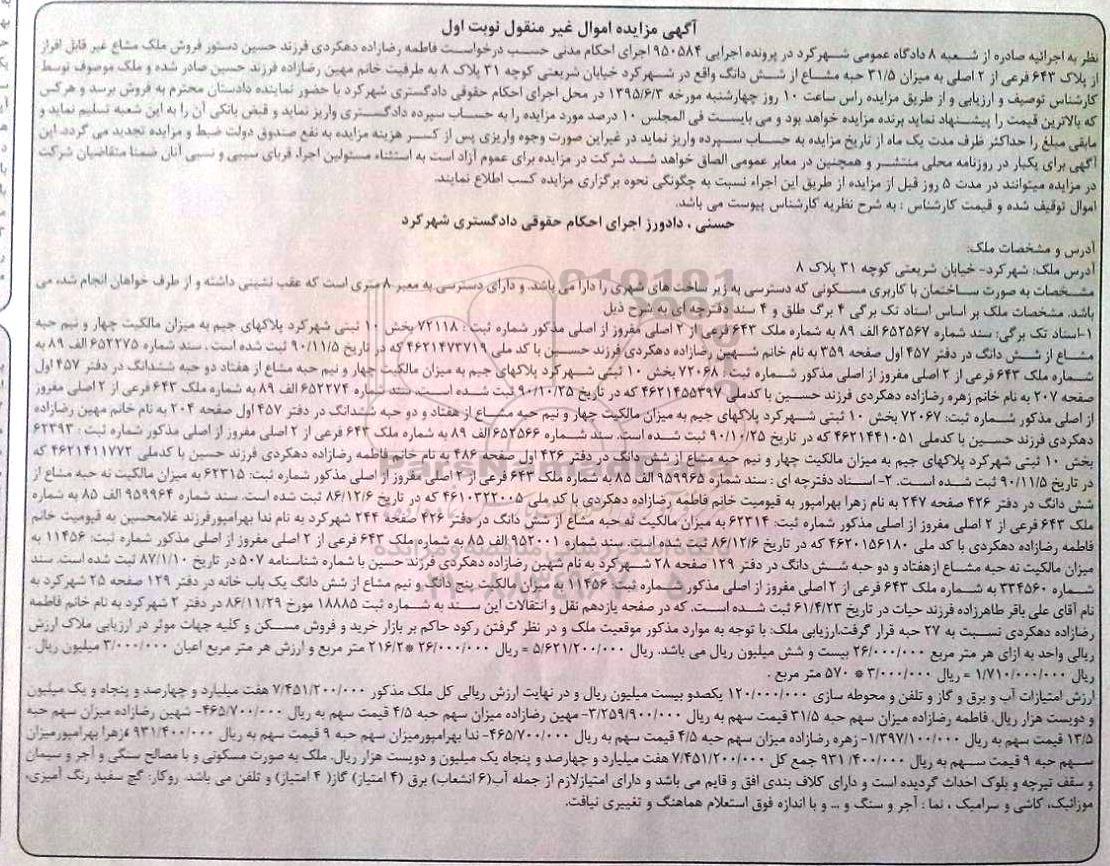 آگهی مزایده اموال غیر منقول نوبت اول
نظر به اجرائیه صادره از شعبه ۸ دادگاه عمومی شهرکرد در پرونده اجرایی ۹۵۰۵۸۴ اجرای احکام مدنی حسب درخواست فاطمه رضازاده دهکردی فرزند حسین دستور فروش ملک مشاع غیر قابل افراز
از پلاک ۶۴۳ فرعی از ۲ اصلی به میزان ۳۱/۵ حبه مشاع از شش دانگ واقع در شهرکرد خیابان شریعتی کوچه ۳۱ پلاک ۸ به طرفیت خانم مهین رضازاده فرزند حسین صادر شده و ملک موصوف توسط
کارشناس توصیف و ارزیابی و از طریق مزایده راس ساعت ۱۰ روز چهارشنبه مورخه ۱۳۹۵/۶/۳ در محل اجرای احکام حقوقی دادگستری شهرکرد با حضور نماینده دادستان محترم به فروش برسد و هرکس
که بالاترین قیمت را پیشنهاد نماید برنده مزایده خواهد بود و می بایست فی المجلس ۱۰ درصد مورد مزایده را به حساب سپرده دادگستری واریز نماید و قبض بانکی آن را به این شعبه تسلیم نماید و
مابقی مبلغ را حداکثر ظرف مدت یک ماه از تاریخ مزایده به حساب سپرده واریز نماید در غیراین صورت وجوه واریزی پس از کسر هزینه مزایده به نفع صندوق دولت ضبط و مزایده تجدید می گردد. این
آگهی برای یکبار در روزنامه محلی منتشر و همچنین در معابر عمومی الصاق خواهد شد شرکت در مزایده برای عموم آزاد است به استثناء مسئولین اجرا، قربای سببی و نسبی آنان ضمنا متقاضیان شرکت
در مزایده میتوانند در مدت ۵ روز قبل از مزایده از طریق این اجراء نسبت به چگونگی نحوه برگزاری مزایده کسب اطلاع نمایند.
اموال توقیف شده و قیمت کارشناس : به شرح نظریه کارشناس پیوست می باشد.
حسنی ، دادورز اجرای احکام حقوقی دادگستری شهرکرد
آدرس و مشخصات ملک:
آدرس ملک: شهرکرد- خیابان شریعتی کوچه ۳۱ پلاک ۸
مشخصات به صورت ساختمان با کاربری مسکونی که دسترسی به زیر ساخت های شهری را دارا می باشد. و دارای دسترسی به معبر ۸ متری است که عقب نشینی داشته و از طرف خواهان انجام شده، می
باشد. مشخصات ملک بر اساس اسناد تک برگی ۴ برگ طلق و ۴ سند دفترچه ای به شرح ذیل
۱-اسناد تک برگی: سند شماره ۶۵۲۵۶۷ الف ۸۹ به شماره ملک ۶۴۳ فرعی از ۲ اصلی مفروز از اصلی مذکور شماره ثبت : ۷۲۱۱۸ بخش ۱۰ ثبتی شهرکرد پلاکهای جیم به میزان مالکیت چهار و نیم حبه
مشاع از شش دانگ در دفتر ۴۵۷ اول صفحه ۳۵۹ به نام خانم شهین رضازاده دهکردی فرزند حسین با کد ملی ۴۶۲۱۴۷۳۷۱۹ که در تاریخ ۹۰/۱۱/۵ ثبت شده است . سند شماره ۶۵۲۲۷۵ الف ۸۹ به
شماره ملک ۶۴۳ فرعی از ۲ اصلی مفروز از اصلی مذکور شماره ثبت : ۷۲۰۶۸ بخش ۱۰ ثبتی شهرکرد پلاکهای جیم به میزان مالکیت چهار و نیم حبه مشاع از هفتاد دو حبه ششدانگ در دفتر ۴۵۷ اول
صفحه ۲۰۷ به نام خانم زهره رضازاده دهکردی فرزند حسین با کدملی ۴۶۲۱۴۵۵۳۹۷ که در تاریخ ۹۰/۱۰/۲۵ ثبت شده است. سند شماره ۶۵۲۲۷۴ الف ۸۹ به شماره ملک ۶۴۳ فرعی از ۲ اصلی مفروز
از اصلی مذکور شماره ثبت: ۷۲۰۶۷ بخش ۱۰ ثبتی شهرکرد پلاکهای جیم به میزان مالکیت چهار و نیم حبه مشاع از هفتاد و دو حبه ششدانگ در دفتر ۴۵۷ اول صفحه ۲۰۴ به نام خانم مهین رضازاده
دهکردی فرزند حسین با کدملی ۴۶۲۱۴۴۱۰۵۱ که در تاریخ ۹۰/۱۰/۲۵ ثبت شده است. سند شماره ۶۵۲۵۶۶ الف ۸۹ به شماره ملک ۶۴۳ فرعی از ۲ اصلی مفروز از اصلی مذکور شماره ثبت : ۶۲۳۹۳
بخش ۱۰ ثبتی شهرکرد پلاکهای جیم به میزان مالکیت چهار و نیم حبه مشاع از شش دانگ در دفتر ۴۲۶ اول صفحه ۴۸۶ به نام خانم فاطمه رضازاده دهکردی فرزند حسین با کدملی ۴۶۲۱۴۱۱۷۷۲ که
در تاریخ ۹۰/۱۱/۵ ثبت شده است. ۲- اسناد دفترچه ای : سند شماره ۹۵۹۹۶۵ الف ۸۵ به شماره ملک ۶۴۳ فرعی از ۲ اصلی مفروز از اصلی مذکور شماره ثبت: ۶۲۳۱۵ به میزان مالکیت نه حبه مشاع از
شش دانگ در دفتر ۴۲۶ صفحه ۲۴۷ به نام زهرا بهرامپور به قیومیت خانم فاطمه رضازاده دهکردی با کد ملی ۴۶۱۰۳۲۲۰۰۵ که در تاریخ ۸۶/۱۲/۶ ثبت شده است. سند شماره ۹۵۹۹۶۴ الف ۸۵ به شماره
ملک ۶۴۳ فرعی از ۲ اصلی مفروز از اصلی مذکور شماره ثبت: ۶۲۳۱۴ به میزان مالکیت نه حبه مشاع از شش دانگ در دفتر ۴۲۶ صفحه ۲۴۴ شهرکرد به نام ندا بهرامپورفرزند غلامحسین به قیومیت خانم
فاطمه رضازاده دهکردی با کد ملی ۴۶۲۰۱۵۶۱۸۰ که در تاریخ ۸۶/۱۲/۶ ثبت شده است. سند شماره ۹۵۲۰۰۱ الف ۸۵ به شماره ملک ۶۴۳ فرعی از ۲ اصلی مفروز از اصلی مذکور شماره ثبت: ۱۱۴۵۶ به
میزان مالکیت نه حبه مشاع ازهفتاد و دو حبه شش دانگ در دفتر ۱۲۹ صفحه ۲۸ شهرکرد به نام شهین رضازاده دهکردی فرزند حسین با شماره شناسنامه ۵۰۷ در تاریخ ۸۷/۱/۱۰ ثبت شده است. سند
شماره ۳۳۴۵۶۰ به شماره ملک ۶۴۳ فرعی از ۲ اصلی مفروز از اصلی مذکور شماره ثبت ۱۱۴۵۶ به میزان مالکیت پنج دانگ و نیم مشاع از شش دانگ یک باب خانه در دفتر ۱۲۹ صفحه ۲۵ شهرکرد به
نام آقای علی باقر طاهرزاده فرزند حیات در تاریخ ۶۱/۴/۲۳ ثبت شده است. که در صفحه یازدهم نقل و انتقالات این سند به شماره ثبت ۱۸۸۸۵ مورخ ۸۶/۱۱/۲۹ در دفتر ۲ شهرکرد به نام خانم فاطمه
رضازاده دهکردی نسبت به ۲۷ حبه قرار گرفت.ارزیابی ملک: با توجه به موارد مذکور موقعیت ملک و در نظر گرفتن رکود حاکم بر بازار خرید و فروش مسکن و کلیه جهات موثر در ارزیابی ملاک ارزش
ریالی واحد به ازای هر متر مربع ۲۶/۰۰۰/۰۰۰ بیست و شش میلیون ریال می باشد. ریال ۵/۶۲۱/۲۰۰/۰۰۰ = ریال ۲۶/۰۰۰/۰۰۰ * ۲۱۶/۲ متر مربع و ارزش هر متر مربع اعیان ۳/۰۰۰/۰۰۰ میلیون ریال .
ریال ۱/۷۱۰/۰۰۰/۰۰۰ = ریال ۳/۰۰۰/۰۰۰ * ۵۷۰ متر مربع .
ارزش امتیازات آب و برق و گاز و تلفن و محوطه سازی ۱۲۰/۰۰۰/۰۰۰ یکصدو بیست میلیون ریال و در نهایت ارزش ریالی کل ملک مذکور ۷/۴۵۱/۲۰۰/۰۰۰ هفت میلیارد و چهارصد و پنجاه و یک میلیون
و دویست هزار ریال. فاطمه رضازاده میزان سهم حبه ۳۱/۵ قیمت سهم به ریال ۳/۲۵۹/۹۰۰/۰۰۰- مهین رضازاده میزان سهم حبه ۴/۵ قیمت سهم به ریال ۴۶۵/۷۰۰/۰۰۰- شهین رضازاده میزان سهم حبه
۱۳/۵ قیمت سهم به ریال ۱/۳۹۷/۱۰۰/۰۰۰- زهره رضازاده میزان سهم حبه ۴/۵ قیمت سهم به ریال ۴۶۵/۷۰۰/۰۰۰- ندا بهرامپورمیزان سهم حبه ۹ قیمت سهم به ریال ۹۳۱/۴۰۰/۰۰۰ زهرا بهرامپورمیزان
سهم حبه ۹ قیمت سهم به ریال ۹۳۱/۴۰۰/۰۰۰ جمع کل ۷/۴۵۱/۲۰۰/۰۰۰ هفت میلیارد و چهارصد و پنجاه یک میلیون و دویست هزار ریال. ملک به صورت مسکونی و با مصالح سنگی و آجر و سیمان
و سقف تیرچه و بلوک احداث گردیده است و دارای کلاف بندی افق و قایم می باشد و دارای امتیازلازم از جمله آب(۶ انشعاب) برق (۴ امتیاز) گاز( ۴ امتیاز) و تلفن می باشد. روکار: گچ سفید رنگ آمیزی،
موزائیک، کاشی و سرامیک ، نما : آجر و سنگ و ... و با اندازه فوق استعلام هماهنگ و تغییری نیافت.